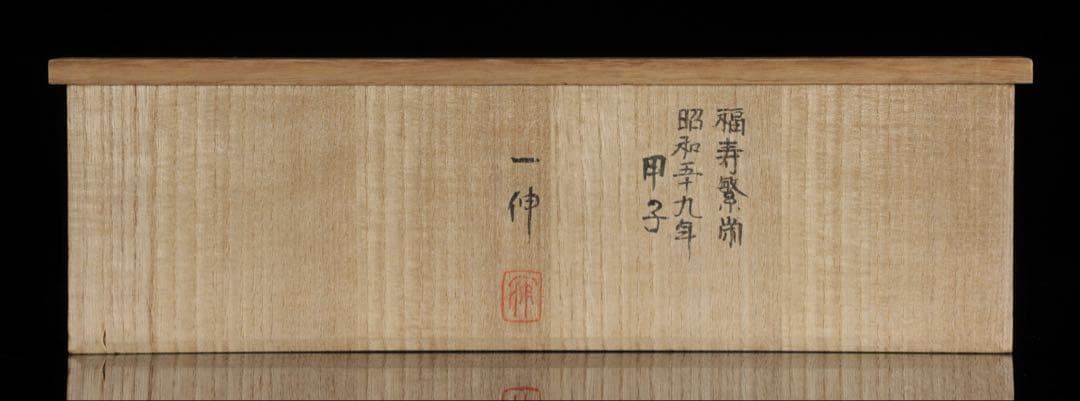 福寿繁栄
昭和五十九年
甲子
一伸